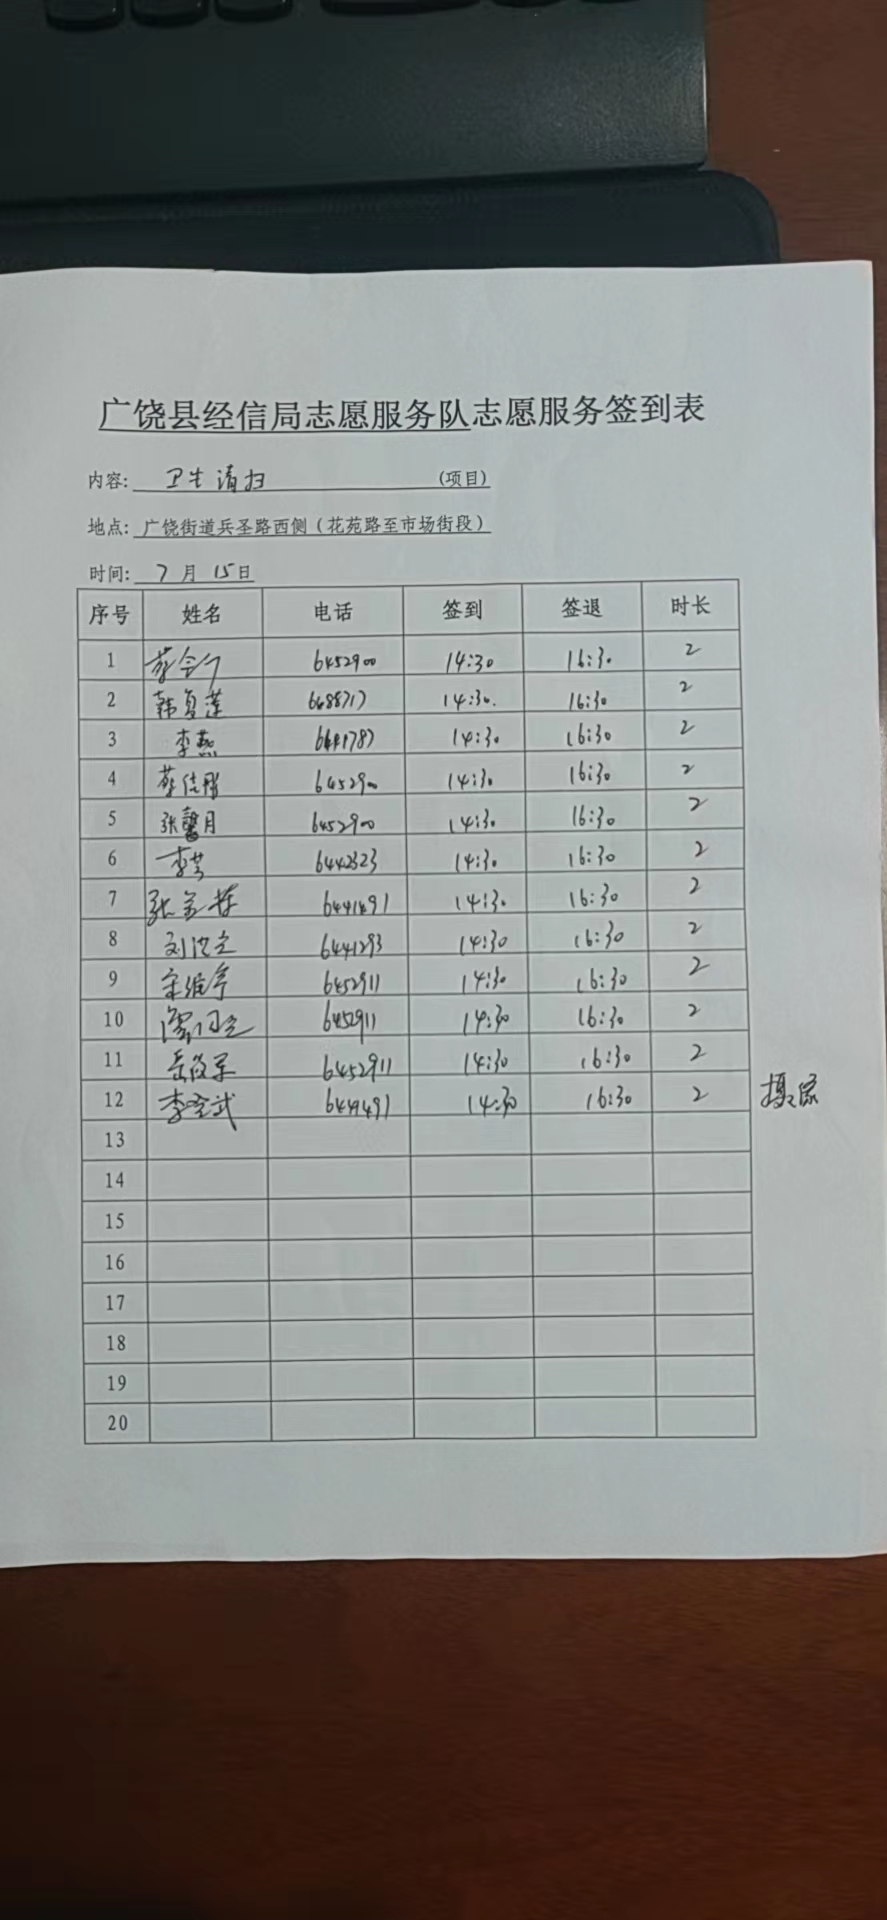 广饶县经信局志愿服务队志愿服务签到表
内容: 卫生清扫 (项目)
地点: 广饶街道兵圣路西侧（花苑路至市场街段）
时间: 7月15日
序号 姓名 电话 签到 签退 时长
1 6452900 14:30 16:30 2
2 韩复莲 14:30 16:30 2
3 李燕 14:30 16:30 2
4 6452900 14:30 16:30 2
5 张馨月 6452900 14:30 16:30 2
6 李芳 6442323 14:30 16:30 2
7 6441491 14:30 16:30 2
8 6441293 14:30 16:30 2
9 6452911 14:30 16:30 2
10 6452911 14:30 16:30 2
11 6452911 14:30 16:30 2
12 14:30 16:30 2
13
14
15
16
17
18
19
20